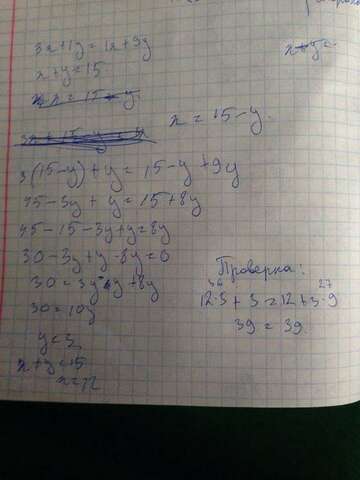 3x+1y=1x+9y
x+y=15
x=15-y
x=15-y.
3(15-y)+y=15-y+9y
45-3y+y=15+8y
45-15-3y+y=8y
30-3y+y-8y=0
30=3y-y+8y
30=10y
y=3
x+y=15
x=12
x+y=
Проверка:
36 27
12·3+3=12+3·9
39=39.